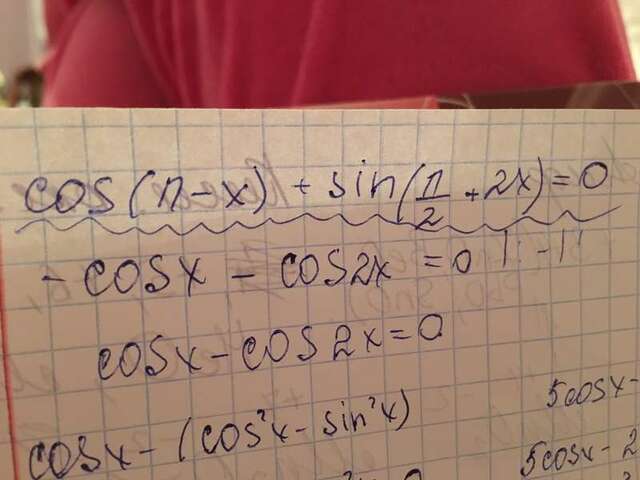 cos(π-x) + sin(π/2 + 2x) = 0
-cosx - cos2x = 0 |:-1|
cosx - cos2x = 0
cosx - (cos²x - sin²x)
5cosx-
5cosx - 2